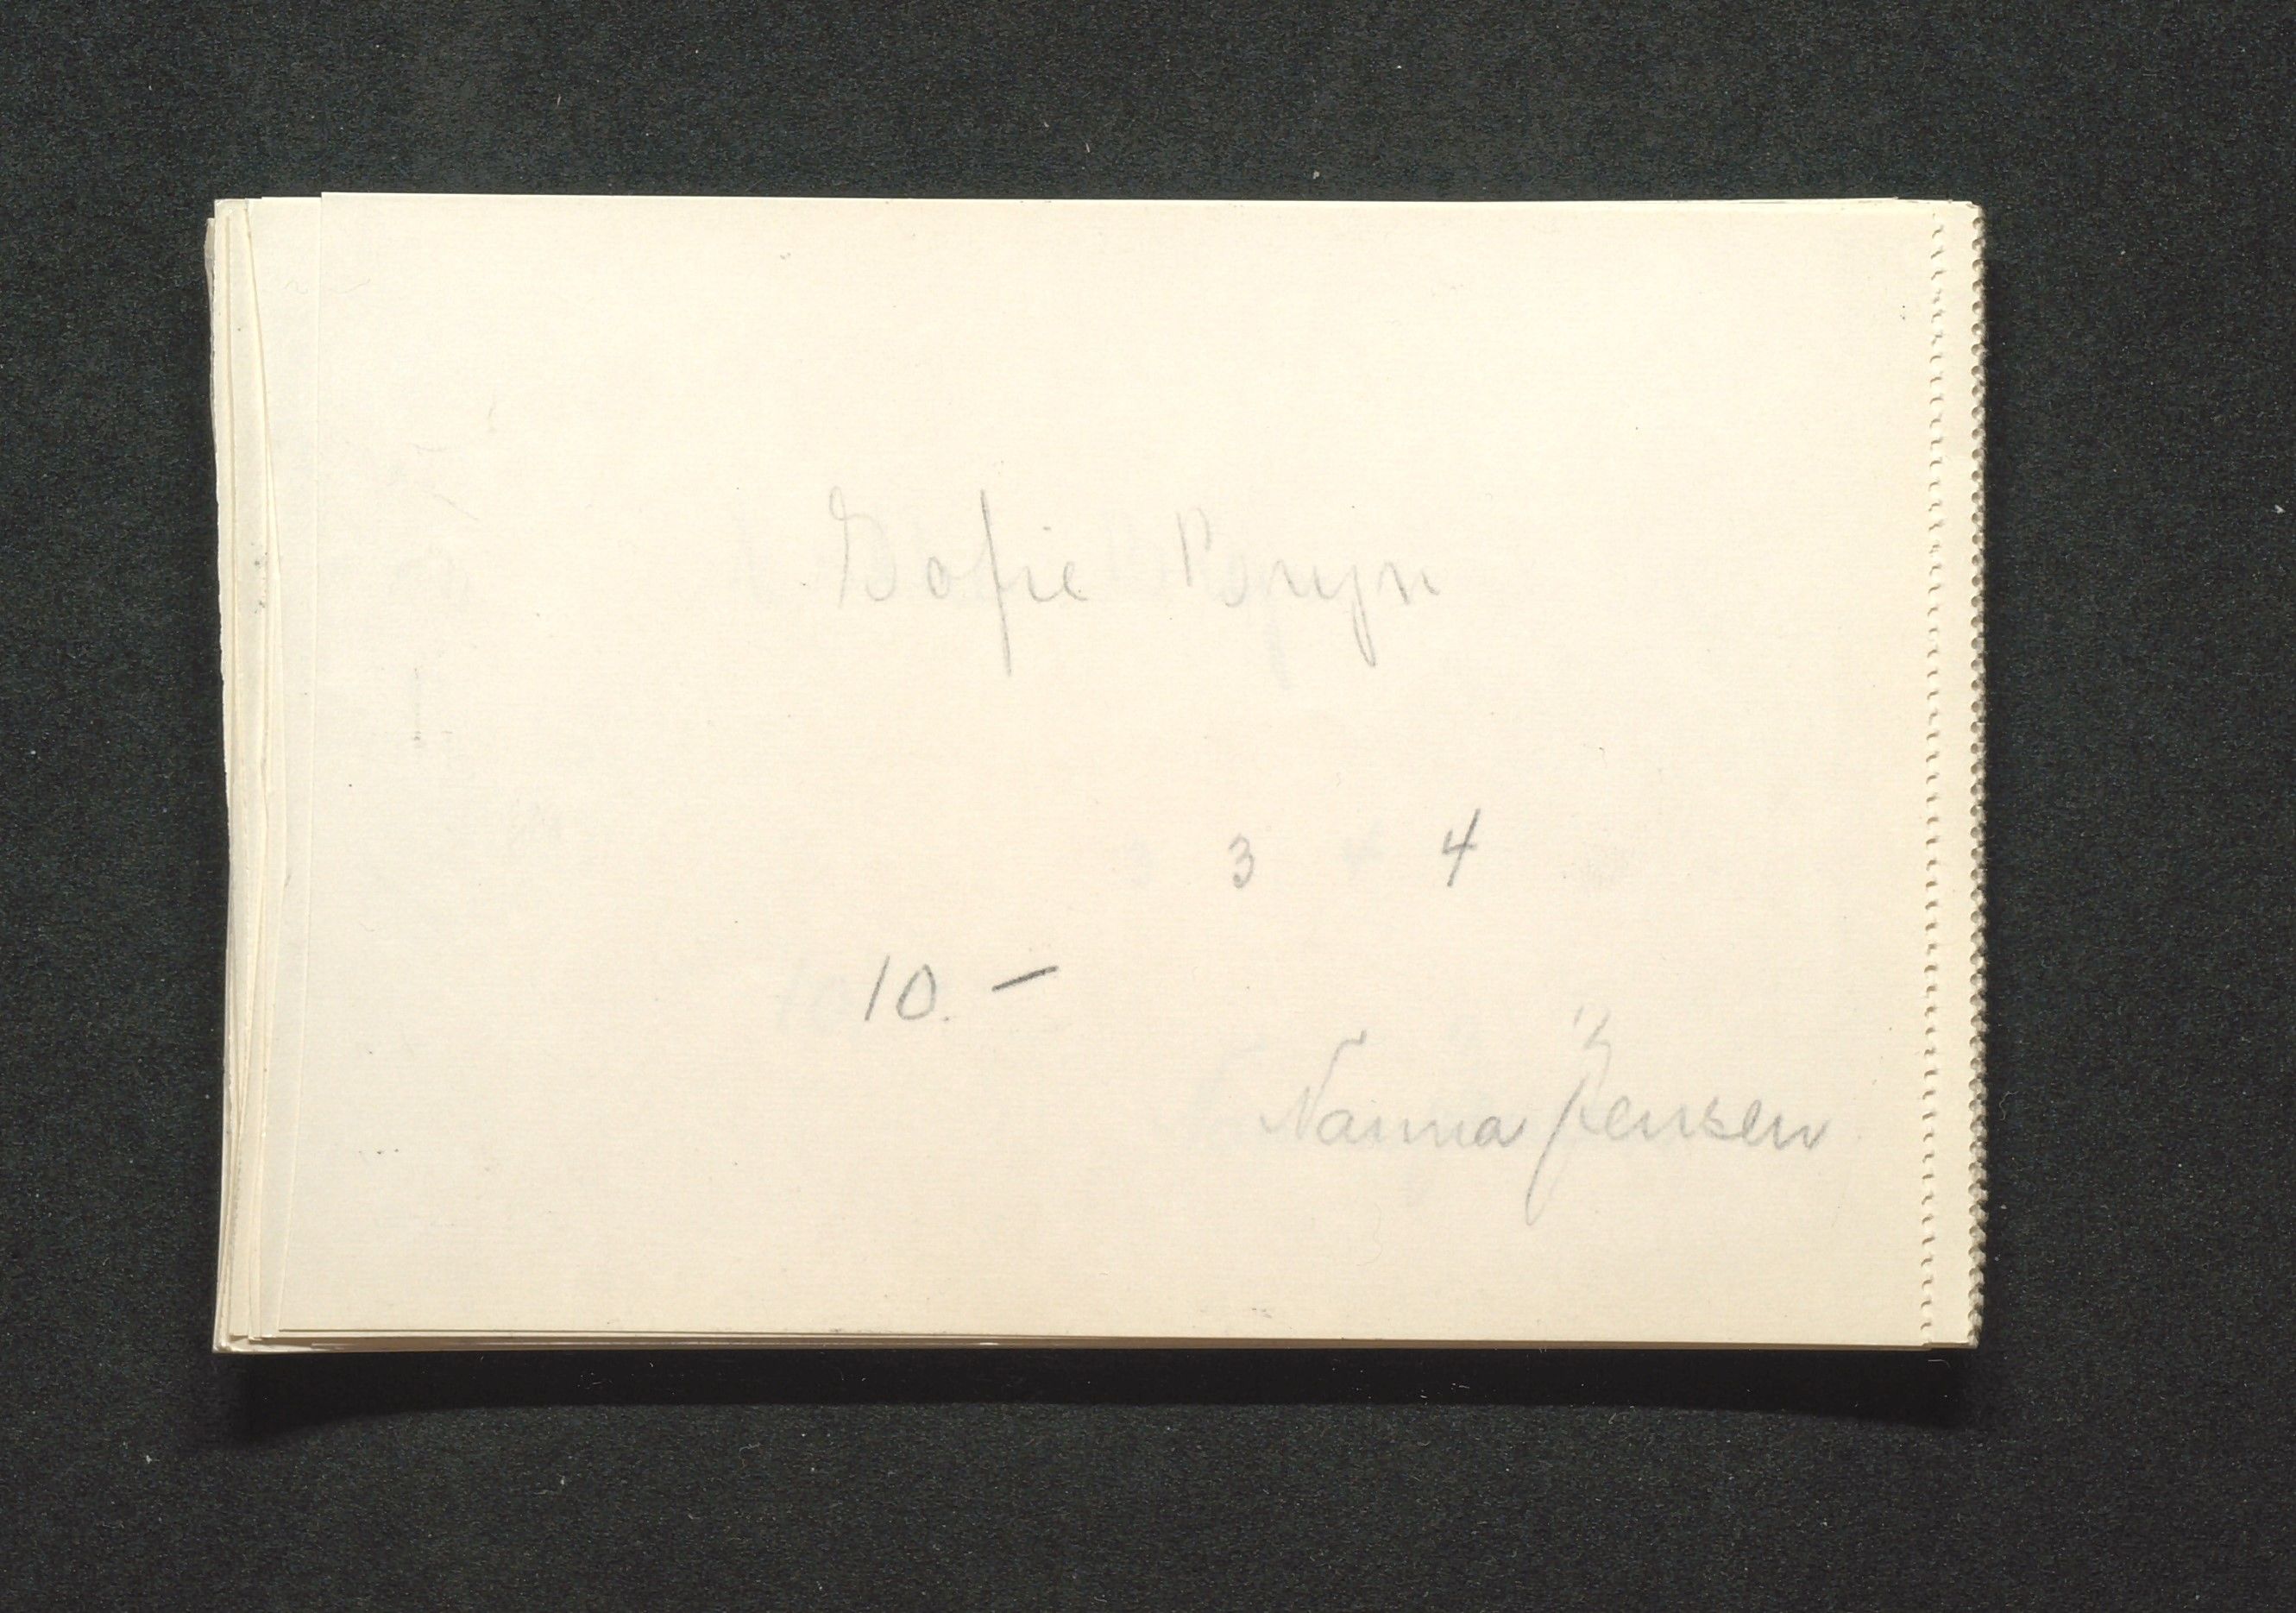 Sofie Bryn
3 4
10.-
Nanna Jensen